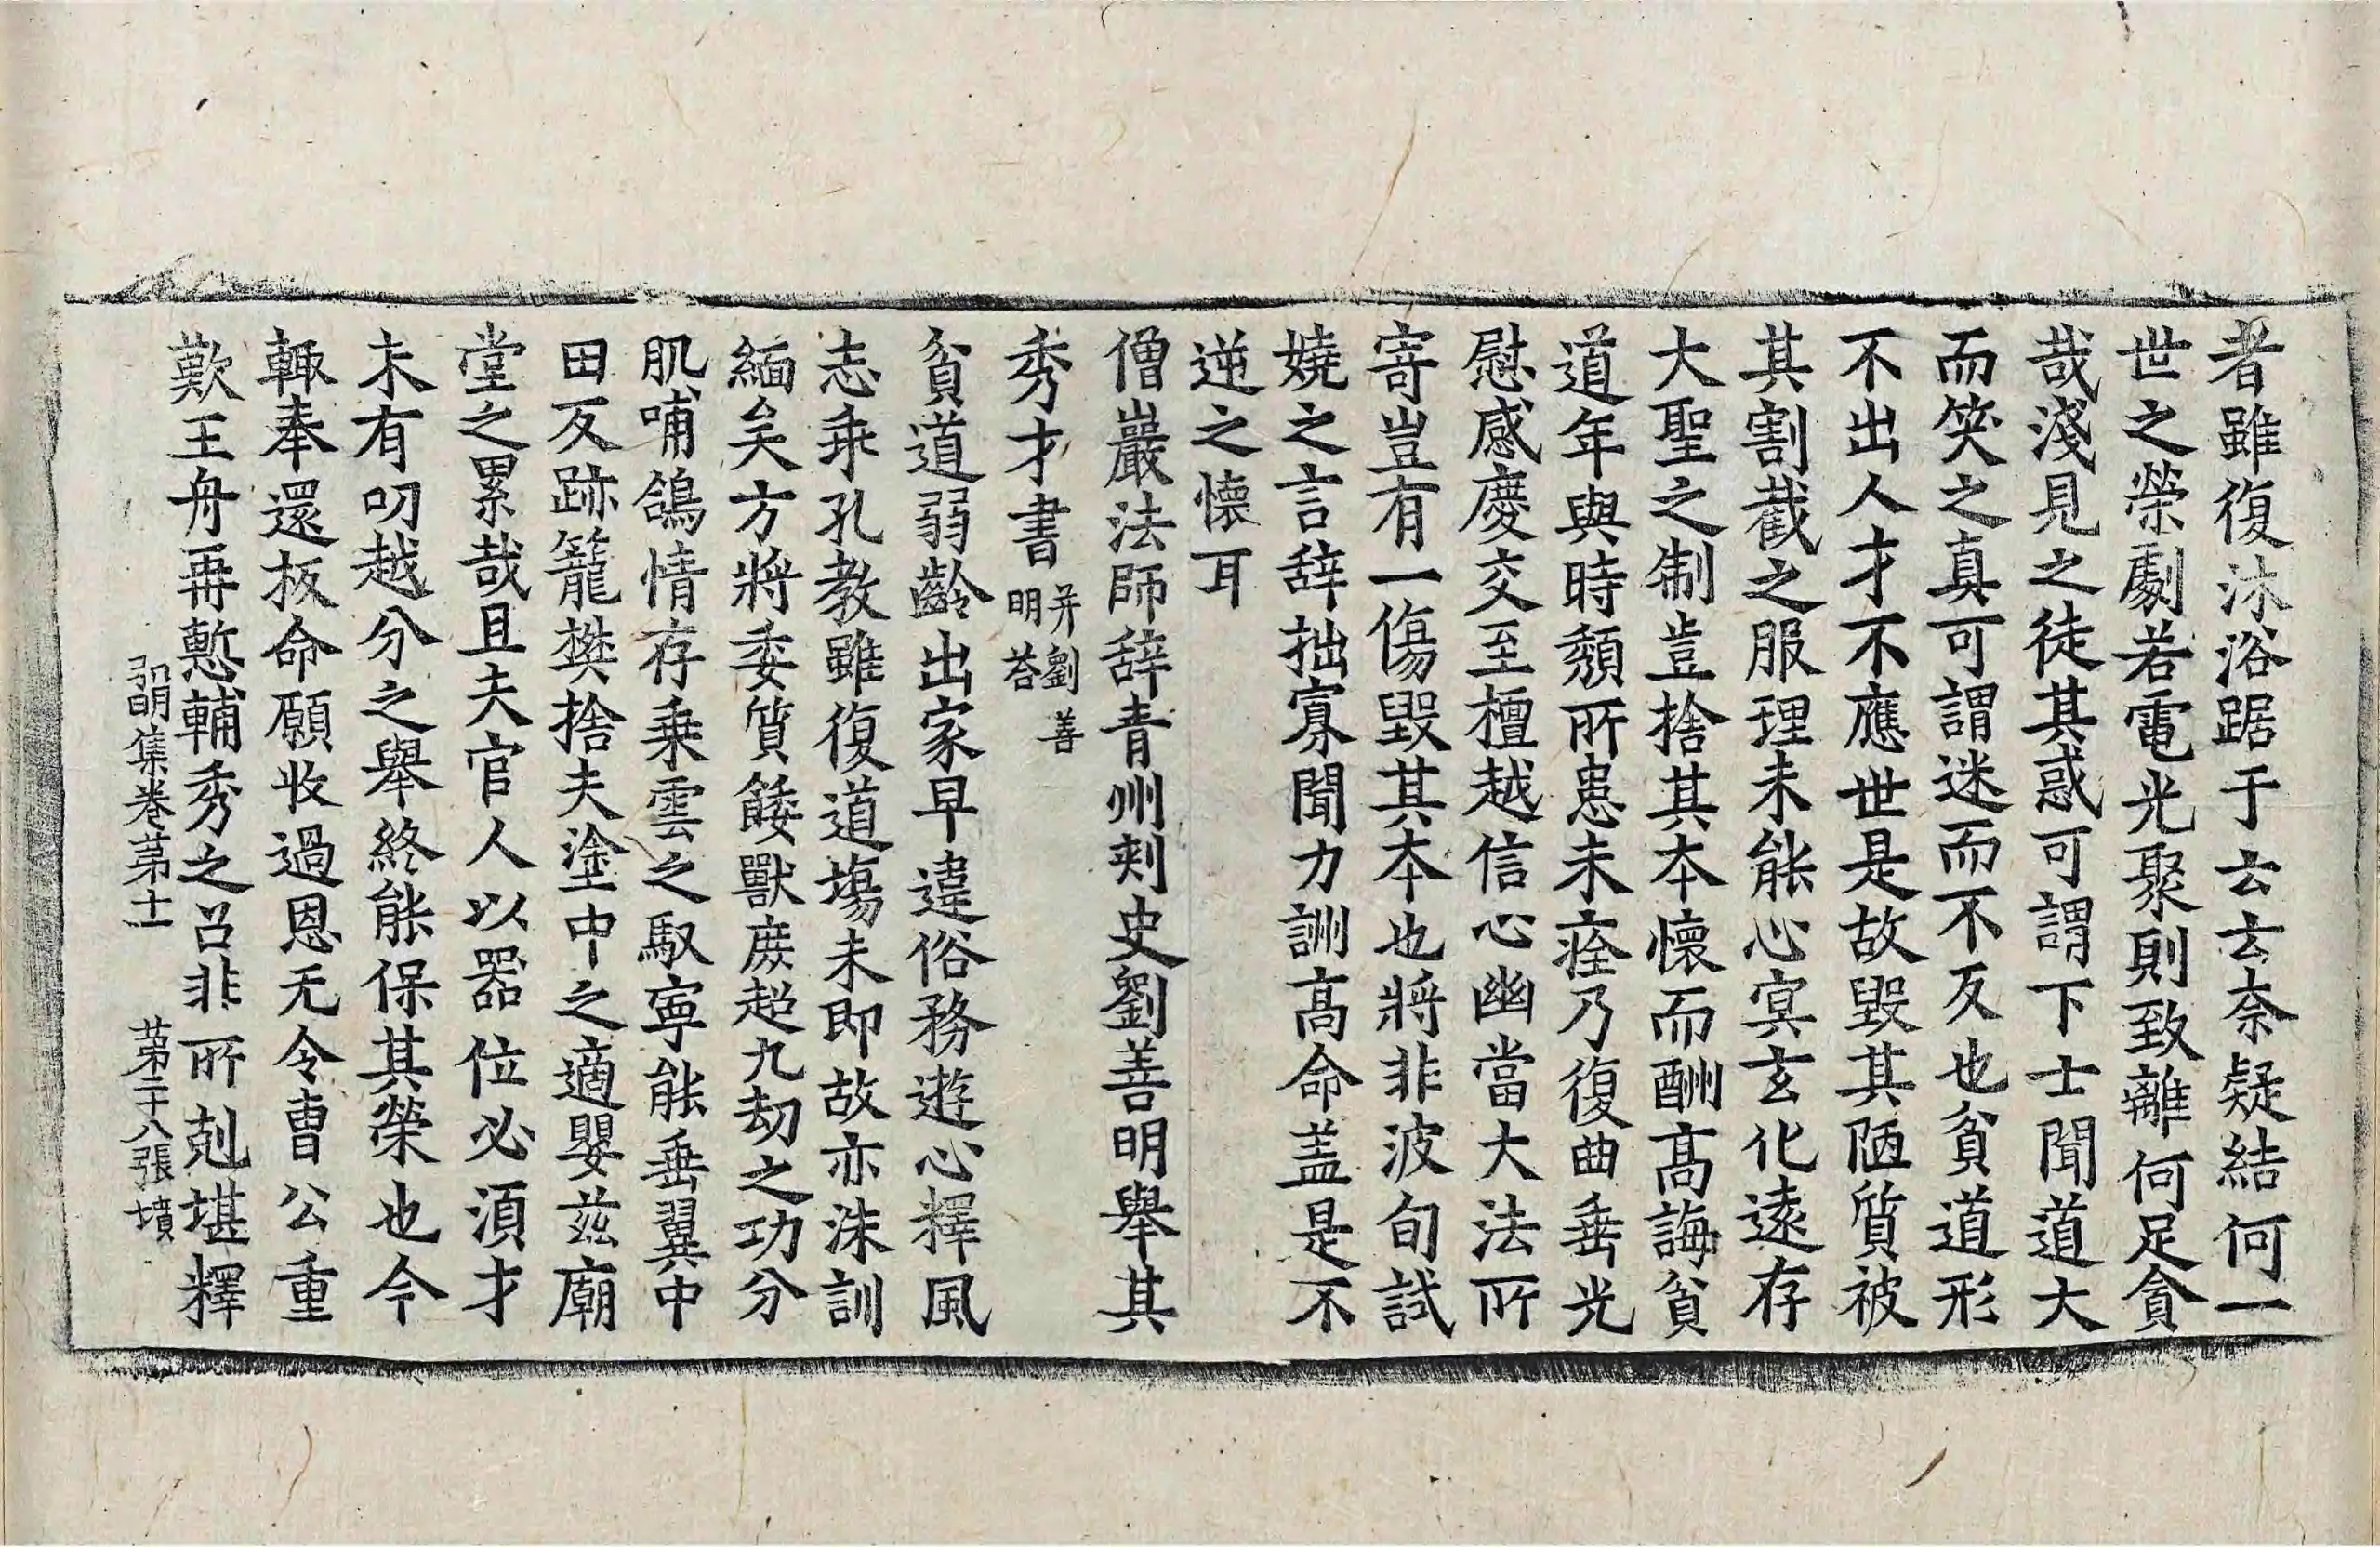 者雖復沐浴踞于云云奈疑結何一
世之榮劇若電光聚則致離何足貪
哉淺見之徒其惑可謂下士聞道大
而笑之真可謂迷而不反也貧道形
不出人才不應世是故毀其陋質被
其割截之服理未能心冥玄化遠存
大聖之制豈捨其本懷而酬高誨貧
道年與時頽所患未痊乃復曲垂光
慰感慶交至檀越信心幽當大法所
寄豈有一傷毀其本也將非波旬試
嬈之言辞拙寡聞力訓高命盖是不
逆之懷耳
僧巖法師辞青州刺史劉善明舉其
秀才書并劉善明荅
貧道弱齡出家早違俗務遊心釋風
志乖孔教雖復道場未即故亦洙訓
緬矣方將委質餧獸庶超九劫之功分
肌哺鴿情存乗雲之馭寧能垂翼中
田反跡籠樊捨夫塗中之適嬰茲廟
堂之累哉且夫官人以器位必湏才
未有叨越分之舉終能保其榮也今
輙奉還板命願收過恩无令曺公重
歎王舟再慙輔秀之召非所剋堪釋
弘明集卷苐十一 苐二十八張 墳